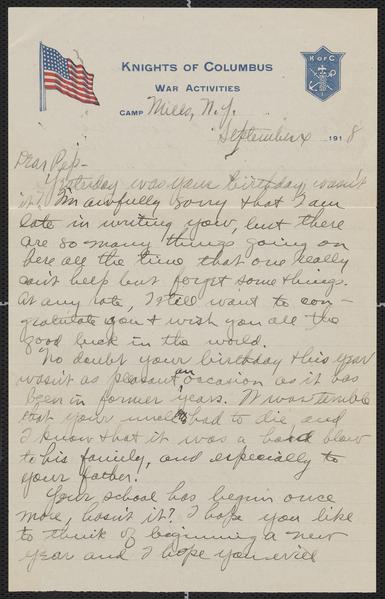 KNIGHTS OF COLUMBUS
K of C
WAR ACTIVITIES
CAMP Mills, N.Y.
September 4 1918
Dear Pep-
Yesterday was your birthday wasn't
it? I'm awfully sorry that I am
late in writing you, but there
are so many things going on
here all the time that one really
can't help but forget some things.
At any rate, I still want to con-
gratulate you & wish you all the
good luck in the world.
No doubt your birthday this year
wasn't as pleasant an occasion as it has
been in former years. It was terrible
that your uncle had to die, and
I know that it was a hard blow
to his family, and especially to
your father.
Your school has begun once
more, hasn't it? I hope you like
to think of beginning a new
year and I hope you will